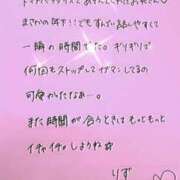 まさかの年下!!でもすんごい話しやすくて
一瞬の時間だった。ギリギリで
何回もストップしてガマンしてるの
可愛かったなぁー。
また時間が合うときはもっともっと
イチャイチャしようね☆
りず♡